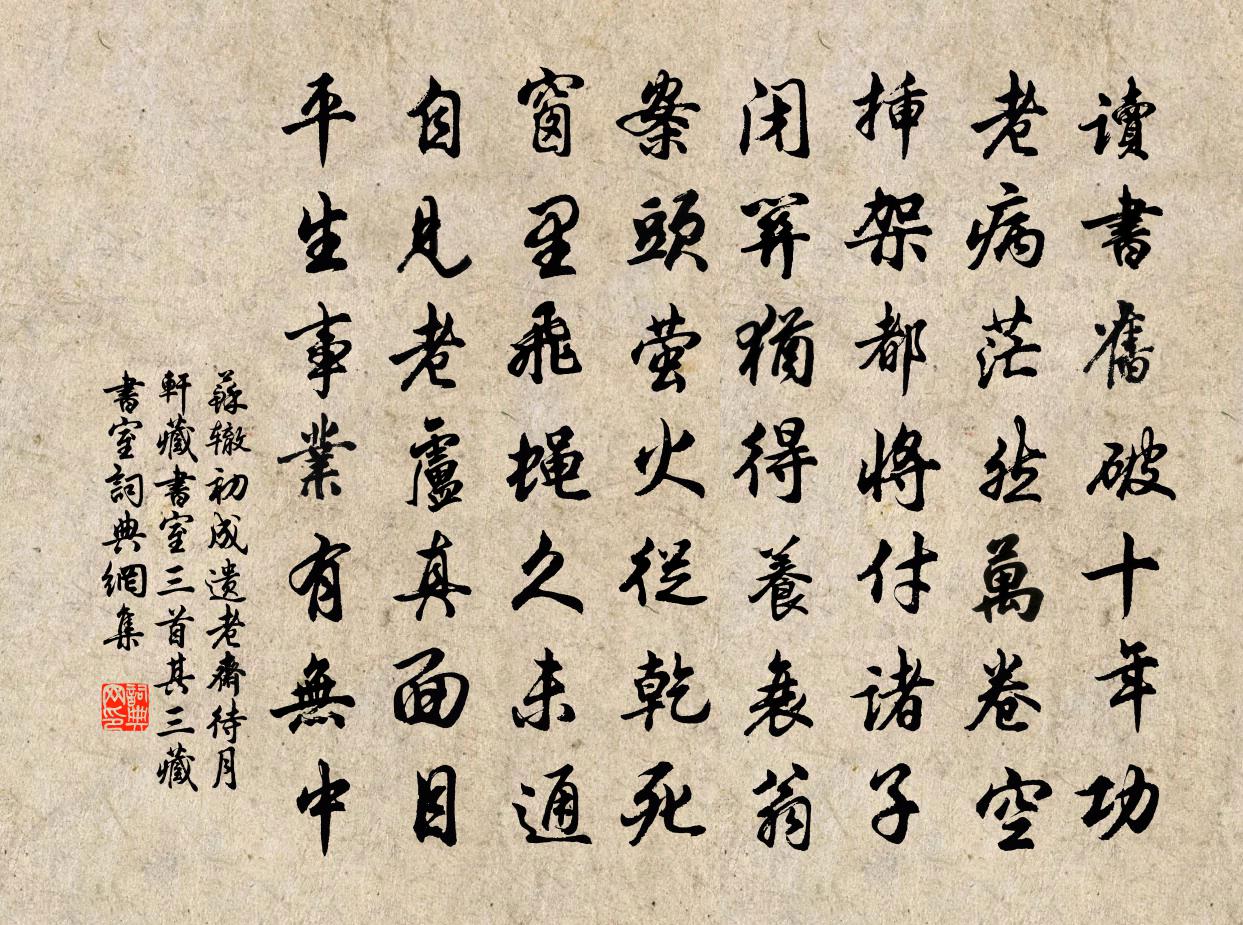 讀書舊破十年功
老病茫然萬卷空
插架都將付諸子
閉關猶得養衰翁
案頭螢火從乾死
窗里飛蠅久未通
自見老盧真面目
平生事業有無中
蘇轍初成遺老齋待月
軒藏書室三首其三藏
書室詞典網集
詞典网印